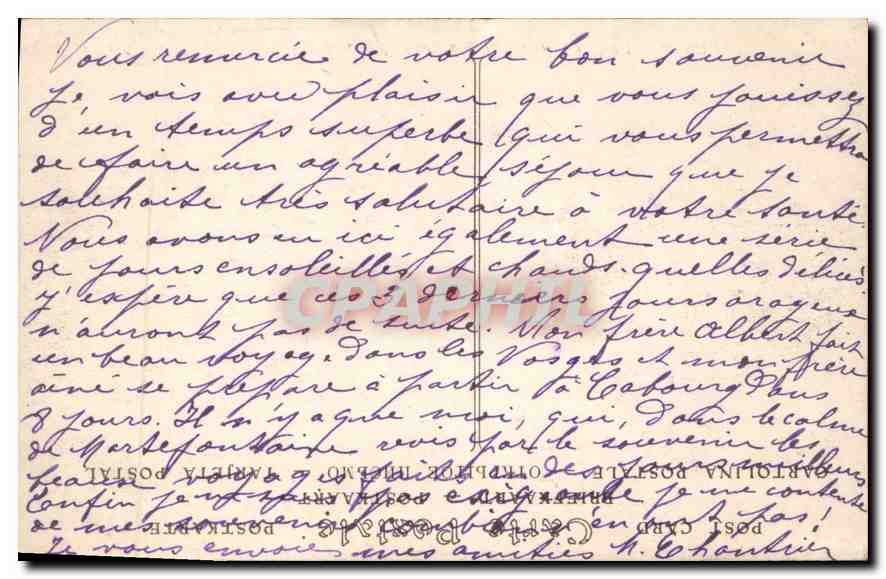 Vous remercie de votre bon souvenir
je vois avec plaisir que vous jouissez
d'un temps superbe qui vous permettra
de faire un agréable séjour que je
souhaite très salutaire à votre santé.
Nous avons eu ici également une série
de jours ensoleillés et chauds. quelles délices
j'espère que ces 3 derniers jours orageux
n'auront pas de suite. Mon frère Albert fait
un beau voyage dans les Vosges et mon frère
aîné se prépare à partir à Cabourg dans
8 jours. Il n'y a que moi, qui, dans le calme
de Mortefontaine revis par le souvenir les
beaux voyages faits des jours meilleurs
Enfin je me contente
de mes souvenirs n'en ont pas!
Je vous envoie mes amitiés M. Chantrier
CARTOLINA POSTALE ОТКРЫТОЕ ПИСЬМО TARJETA POSTAL
BRIEFKAART POSTKAART
POST CARD Carte Postale POSTKARTE
CPAPHIL